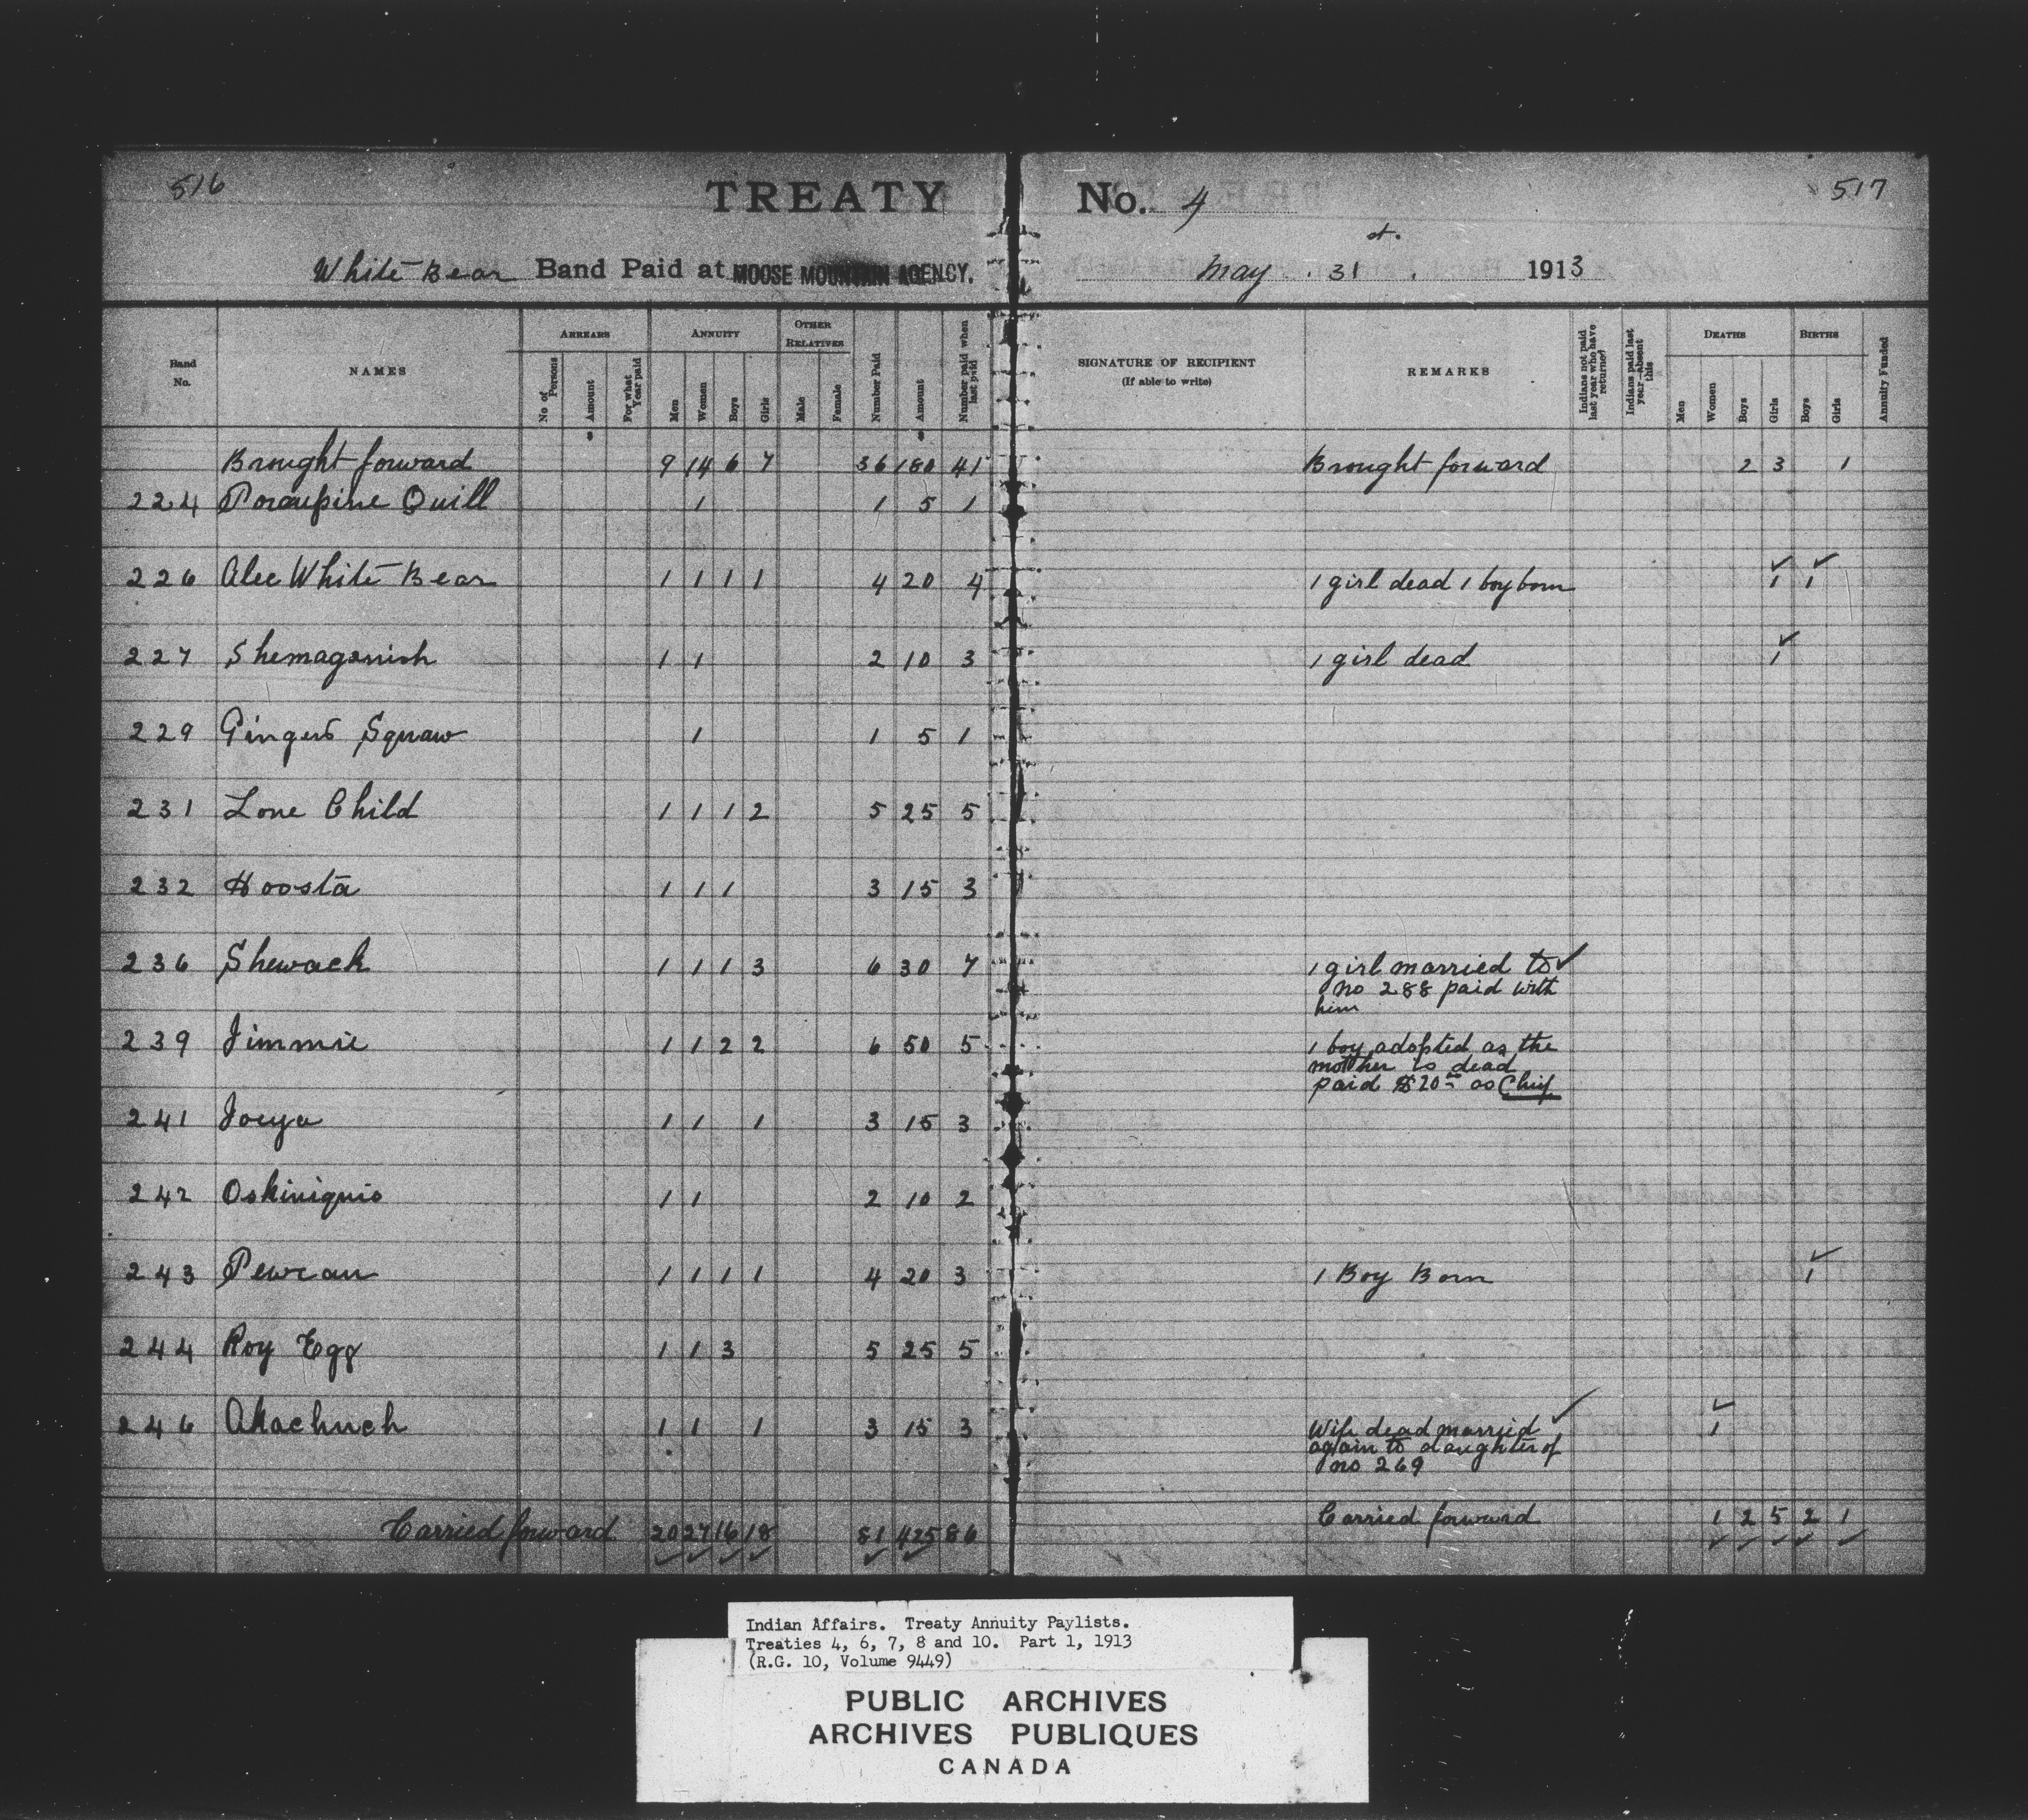 516
TREATY No. 4
517
White Bear Band Paid at MOOSE MOUNTAIN AGENCY. May 31st. 1913
Band No.
NAMES
ARREARS
No of Persons
Amount
For what Year paid
ANNUITY
Men
Women
Boys
Girls
OTHER RELATIVES
Male
Female
Number Paid
Amount
Number paid when last paid
SIGNATURE OF RECIPIENT
(If able to write)
REMARKS
Indians not paid last year who have returned
Indians paid last year—absent this
DEATHS
Men
Women
Boys
Girls
BIRTHS
Boys
Girls
Annuity Funded
Brought forward 9 14 6 7 36 180 41 Brought forward 2 3 1
224 Porcupine Quill 1 1 5 1
226 Alec White Bear 1 1 1 1 4 20 4 1 girl dead 1 boy born 1 1
227 Shemaganish 1 1 2 10 3 1 girl dead 1
229 Gingers Squaw 1 1 5 1
231 Lone Child 1 1 1 2 5 25 5
232 Hoosta 1 1 1 3 15 3
236 Shewack 1 1 1 3 6 30 7 1 girl married to
no 288 paid with
him
239 Jimmie 1 1 2 2 6 50 5 1 boy adopted as the
mother is dead
paid $20 as Chief
241 Joeya 1 1 1 3 15 3
242 Oskiniquio 1 1 2 10 2
243 Pewean 1 1 1 1 4 20 3 1 Boy Born 1
244 Roy Egg 1 1 3 5 25 5
246 Akachuch 1 1 1 3 15 3 Wife dead married 1
again to daughter of
no 269
Carried forward 20 27 16 18 81 425 86 Carried forward 1 2 5 2 1
Indian Affairs. Treaty Annuity Paylists.
Treaties 4, 6, 7, 8 and 10. Part 1, 1913
(R.G. 10, Volume 9449)
PUBLIC ARCHIVES
ARCHIVES PUBLIQUES
CANADA